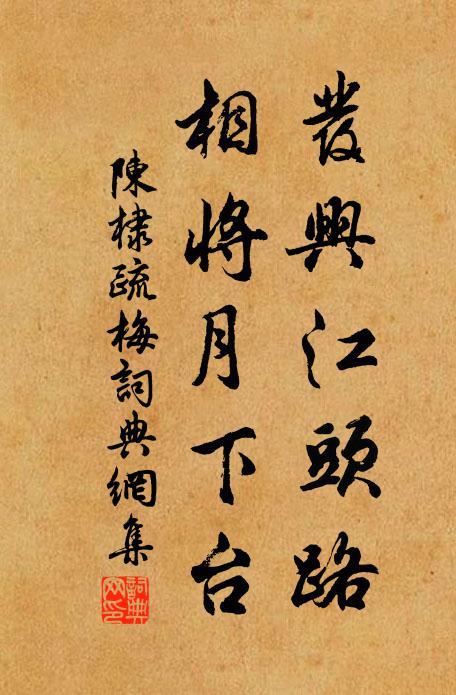 發興江頭路
相將月下台
陳棣疏梅詞典網集
詞典網印